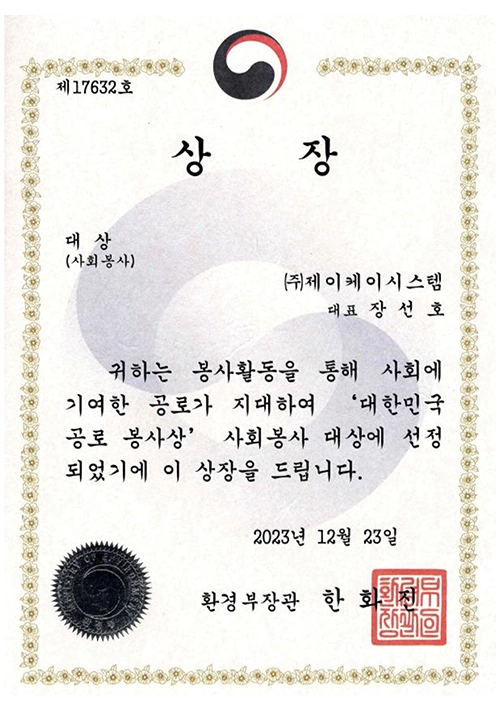 제17632호
상 장
대 상
(사회봉사)
㈜제이케이시스템
대표 장선호
귀하는 봉사활동을 통해 사회에
기여한 공로가 지대하여 ‘대한민국
공로 봉사상’ 사회봉사 대상에 선정
되었기에 이 상장을 드립니다.
2023년 12월 23일
환경부장관 한화진